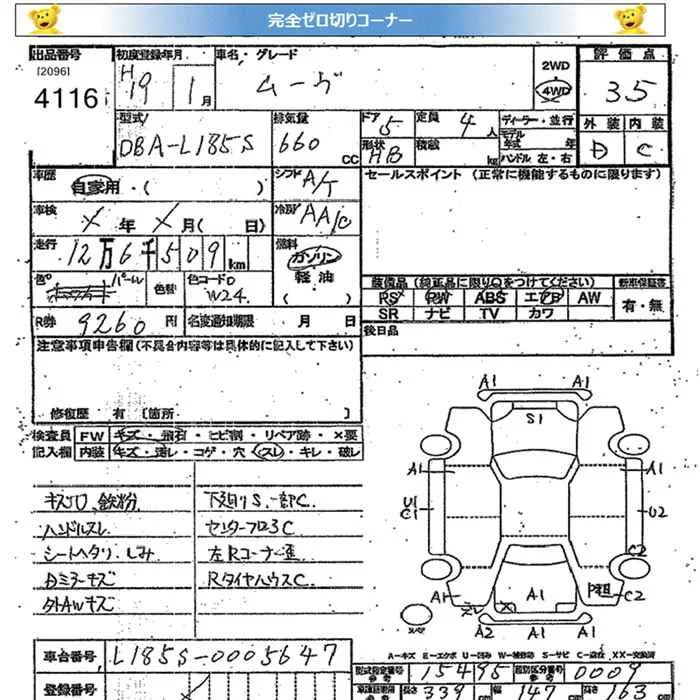 完全ゼロ切りコーナー
出品番号 初度登録年月 車名・グレード 2WD 評価点
[2096] H19 1月 ムーヴ 4WD 35
4116
型式 排気量 ドア 5 定員 4人 ディーラー・並行 外装 内装
DBA-L185S 660 CC 形状 HB 積載 kg モデル年式 年 D C
ハンドル 左・右
車歴 自家用・( ) シフト A/T セールスポイント (正常に機能するものに限ります)
車検 年 月( 日) 冷房 AAC
走行 12万6千509km 燃料 ガソリン
軽油
( )
色 パール 色替 色コードNo W24
装備品(純正品に限り○をつけてください) 新車保証書
RS PW ABS エアB AW 有・無
SR ナビ TV カワ
R券 9260円 名変通知期限 月 日
後日品
注意事項申告欄(不具合内容等は具体的に記入して下さい)
修復歴 有 [箇所 ]
検査員 FW キズ・飛石・ヒビ割・リペア跡・×要
記入欄 内装 キズ・汚レ・コゲ・穴・スレ・キレ・破レ
鉄粉
ハンドルスレ
シートヘタリ、しみ
Dミラーキズ
外AWキズ
下廻りS、一部C
左Rコーナー歪
RタイヤハウスC
A1 A1
S1
A1 A1
U1
C1
U2
C2
A1 A1 C2
A2 A1 A1
A-キズ E-エクボ U-凹み W-補修跡 S-サビ C-腐蝕 XX-交換済
車台番号 L185S-0005647
登録番号
型式指定番号 15495 類別区分番号 0009
長さ 339 幅 147 高さ 163